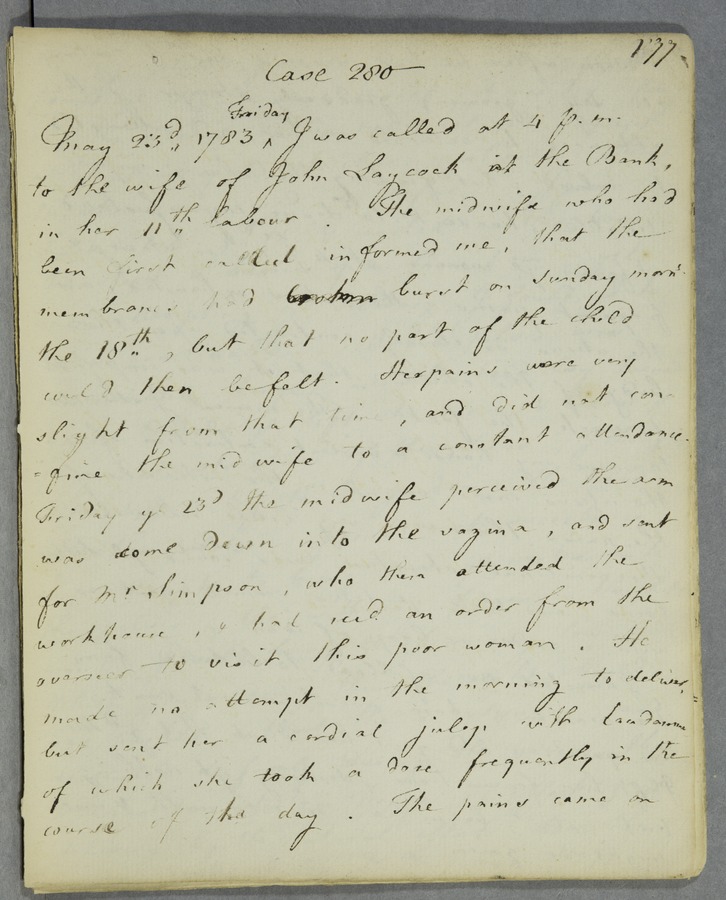 137
Case 280
Friday
May 23d, 1783 ^ I was called at 4 p.m.
to the wife of John Laycock at the Bank,
in her 11th labour. The midwife who had
been first called informed me, that the
membranes had burst on sunday morn:
the 18th, but that no part of the child
could then be felt. Her pains were very
slight from that time, and did not con-
=fine the midwife to a constant attendance.
Friday ye 23d the midwife perceived the arm
was come down into the vagina, and sent
for Mr Simpson, who then attended the
workhouse, & had rec'd an order from the
overseer to visit this poor woman. He
made no attempt in the morning to deliver,
but sent her a cordial julep with laudanum
of which she took a dose frequently in the
course of the day. The pains came on